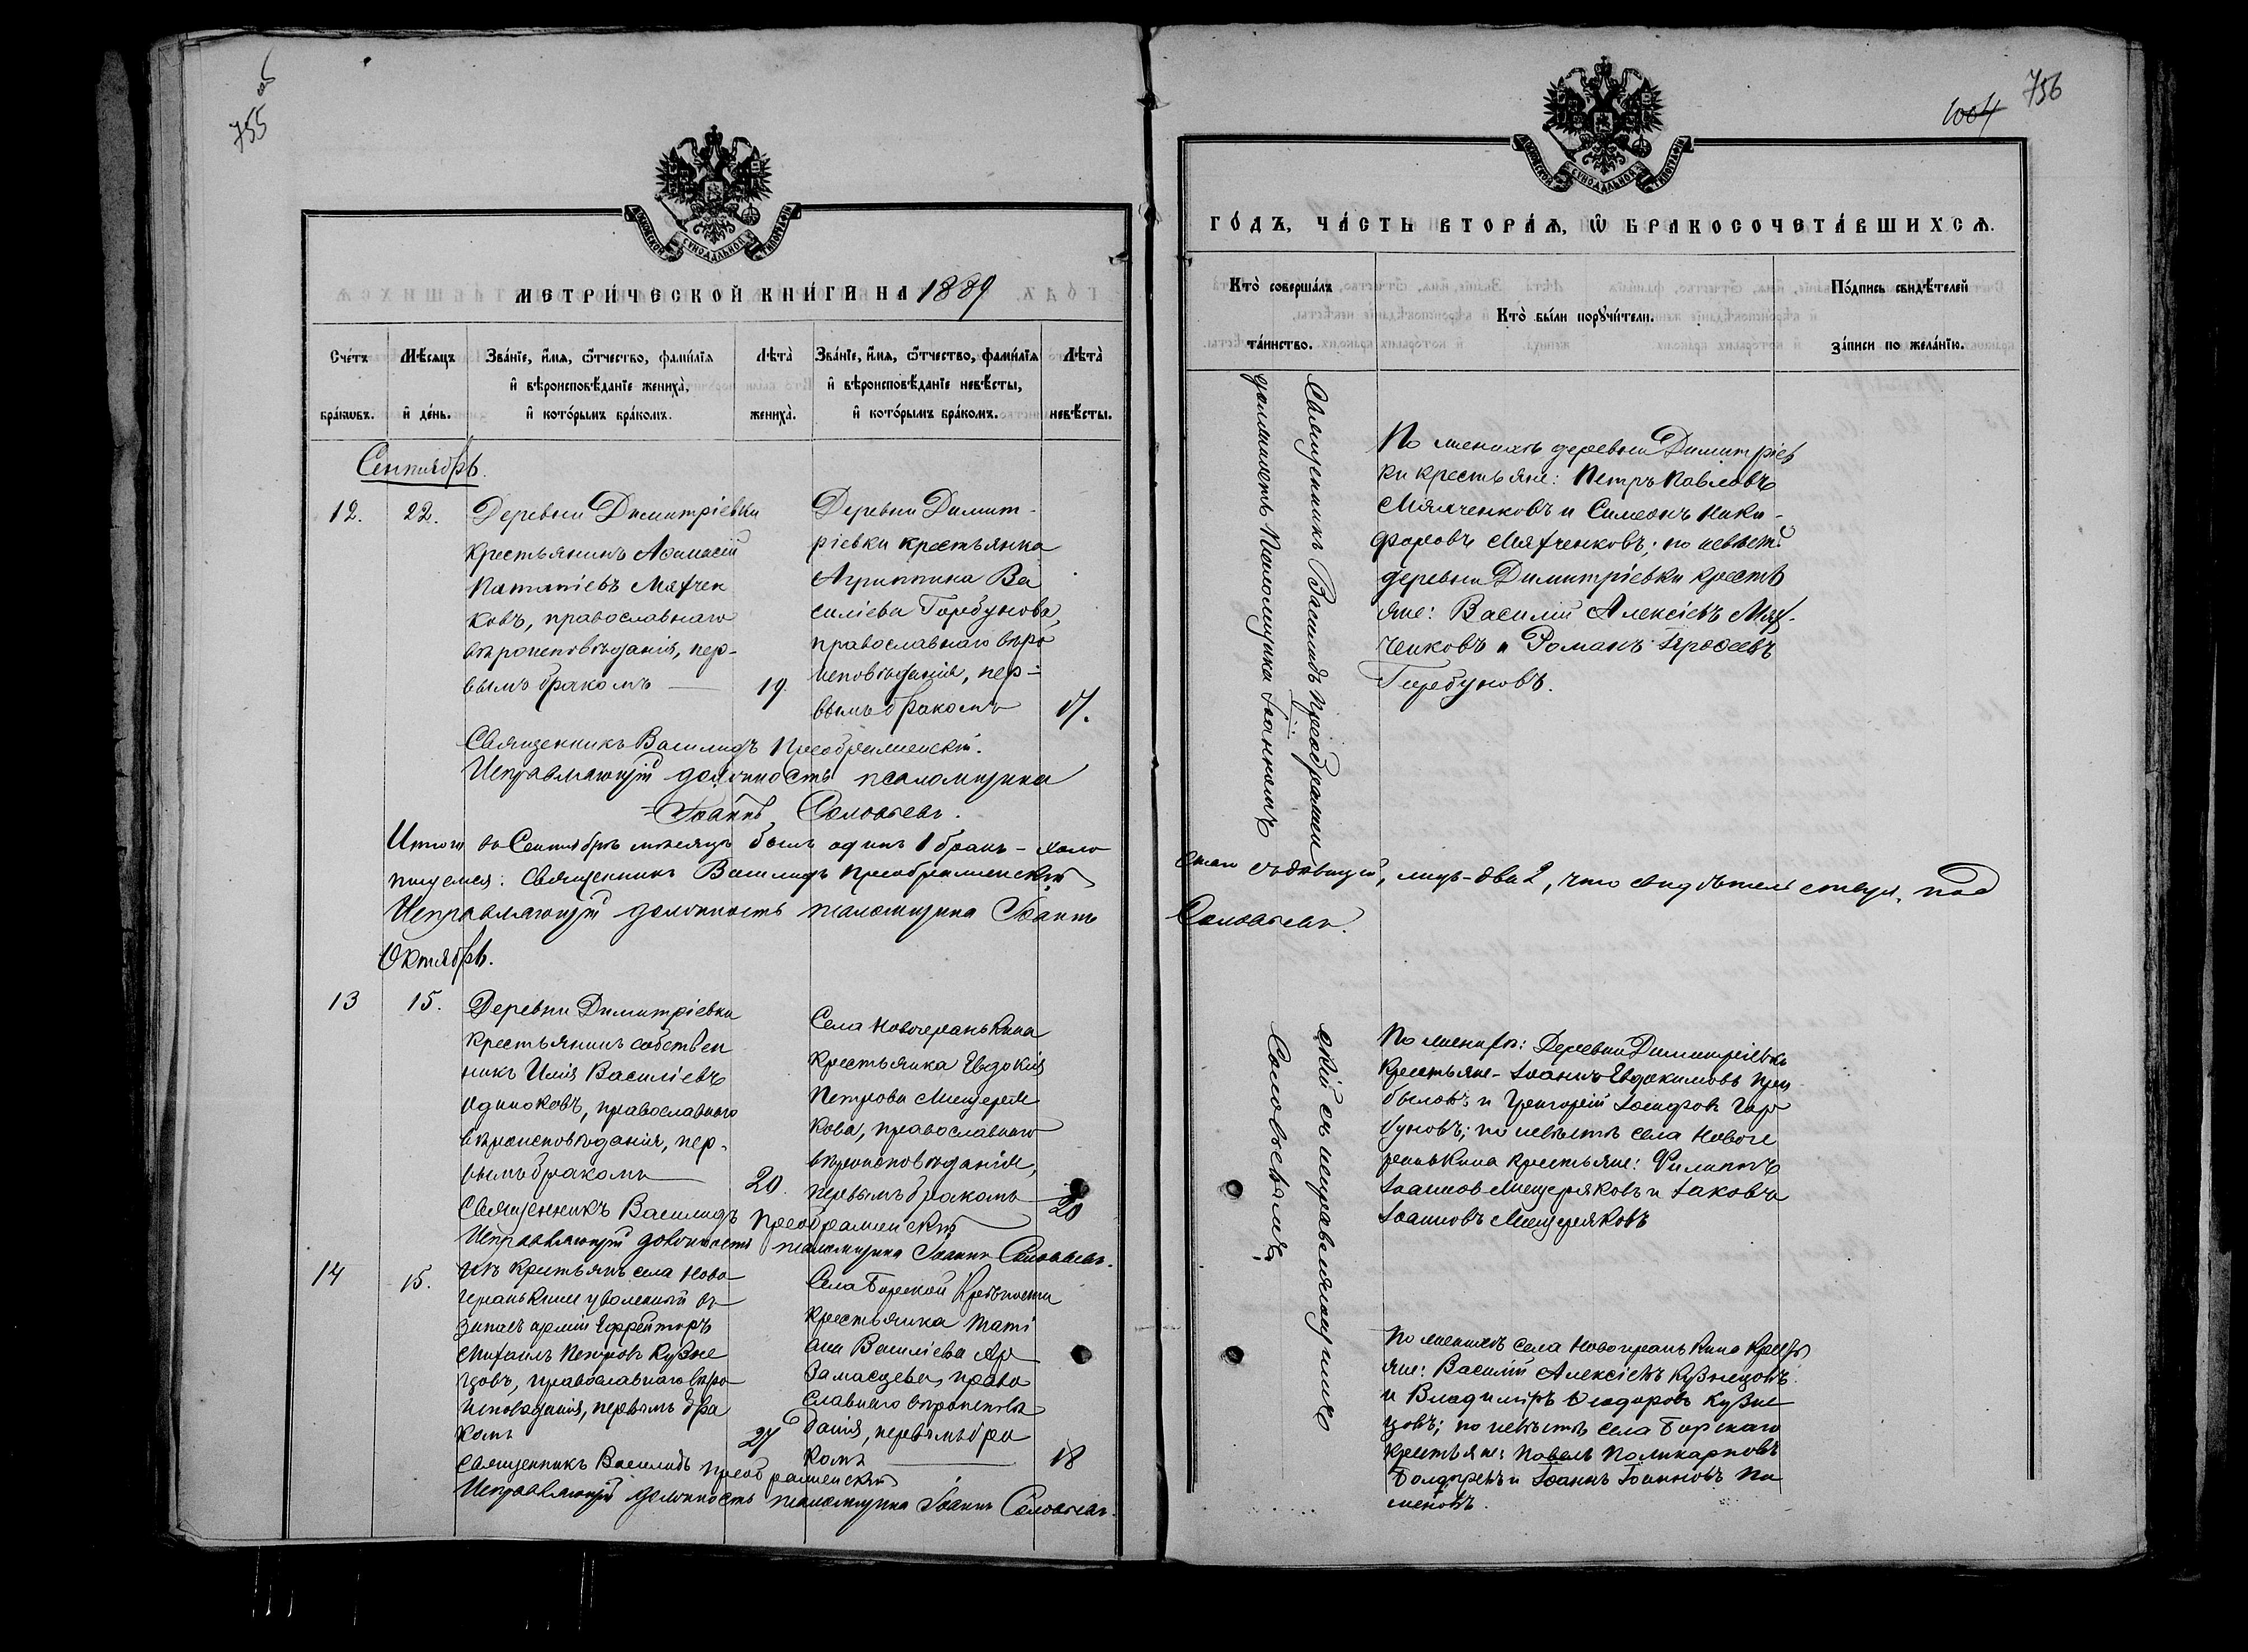 755 об
МОСКОВСКОЙ СУНОДАЛЬНОЙ ТИПОГРАФІИ
МЕТРИ́ЧЕСКОЙ КНИ́ГИ НА 1889
Сче́тъ бра́кѡвъ.
Мѣ́сяцъ и҆ де́нь.
Зва́нїе, и҆́мя, ѻ҆́тчество, фами́лїя
и҆ вѣроисповѣ́данїе жениха̀,
и҆ кото́рымъ бра́комъ.
Лѣта̀ жениха̀.
Зва́нїе, и҆́мя, ѻ҆́тчество, фами́лїя
и҆ вѣроисповѣ́данїе невѣ́сты,
и҆ кото́рымъ бра́комъ.
Лѣта̀ невѣ́сты.
Сентябрь.
12.
22.
Деревни Димитріевки
крестьянинъ Аѳанасій
Потапіевъ Мягчен
ковъ, православнаго
вѣроисповѣданія, пер-
вымъ бракомъ
19.
Деревни Димит-
ріевки крестьянка
Агриппина Ва
силіева Горбунова,
православнаго вѣро
исповѣданія, пер-
вымъ бракомъ
17.
Священникъ Василидъ Преображенскій.
Исправляющій должность псаломщика
Іоаннъ Соловьевъ.
Итого въ Сентябрѣ мѣсяцѣ былъ одинъ 1 бракъ - холо
пишемся: Священникъ Василидъ Преображенскій
Исправляющій должность псаломщика Іоаннъ
Октябрь.
13
15.
Деревни Димитріевки
крестьянинъ собствен
никъ Илія Василіевъ
Одиноковъ, православнаго
вѣроисповѣданія, пер-
вымъ бракомъ
20.
Села Новогеранькина
крестьянка Евдокія
Петрова Мещеря
кова, православнаго
вѣроисповѣданія,
первымъ бракомъ
20
Священникъ Василидъ Преображенскій
Исправляющій должность псаломщика Іоаннъ Соловьевъ.
14
15.
Изъ крестьянъ села Ново
геранькина уволенный въ
запасъ арміи Ефрейторъ
Михаилъ Петровъ Кузне
цовъ, православнаго вѣро
исповѣданія, первымъ бра
комъ
27
Села Борской Крѣпости
крестьянка Таті
ана Василіева Ар
замасцева, право
славнаго вѣроисповѣ
данія, первымъ бра
комъ
18
Священникъ Василидъ Преображенскій
Исправляющій должность псаломщика Іоаннъ Соловьевъ.
1004
756
МОСКОВСКОЙ СУНОДАЛЬНОЙ ТИПОГРАФІИ
ГО́ДЪ, ЧА́СТЬ ВТОРА́Ѧ, Ѡ҆ БРАКОСОЧЕТА́ВШИХСѦ.
Кто̀ соверша́лъ
та́инство.
Кто̀ бы́ли порꙋчи́тели.
По́дпись свидѣ́телей
за́писи по жела́нїю.
Священникъ Василидъ Преображен
должность Псаломщика Іоанномъ
По женихѣ деревни Димитріев
ки крестьяне: Петръ Павловъ
Мягченковъ и Симеонъ Ники-
форовъ Мягченковъ; по невѣстѣ
деревни Димитріевки кресть
яне: Василій Алексіевъ Мяг-
ченковъ и Романъ
Горбуновъ.
стаго съ дѣвицей, лицъ - два 2, что свидѣтельствуя, под
Соловьевъ.
скій съ исправляющимъ
Соловьевымъ.
По женихѣ: Деревни Димитріевки
крестьяне - Іоаннъ Евдокимовъ При
быловъ и Григорій Іосифовъ Гор
буновъ; по невѣстѣ села Новоге
ранькина крестьяне: Филиппъ
Іоанновъ Мещеряковъ и Іаковъ
Іоанновъ Мещеряковъ
По женихѣ села Новогеранькина Кресть
яне: Василій Алексіевъ Кузнецовъ
и Владиміръ Ѳеодоровъ Кузне
цовъ; по невѣстѣ села Борскаго
крестьяне: Павелъ Поликарповъ
Болдыревъ и Іоаннъ Іоанновъ Пи
меновъ.